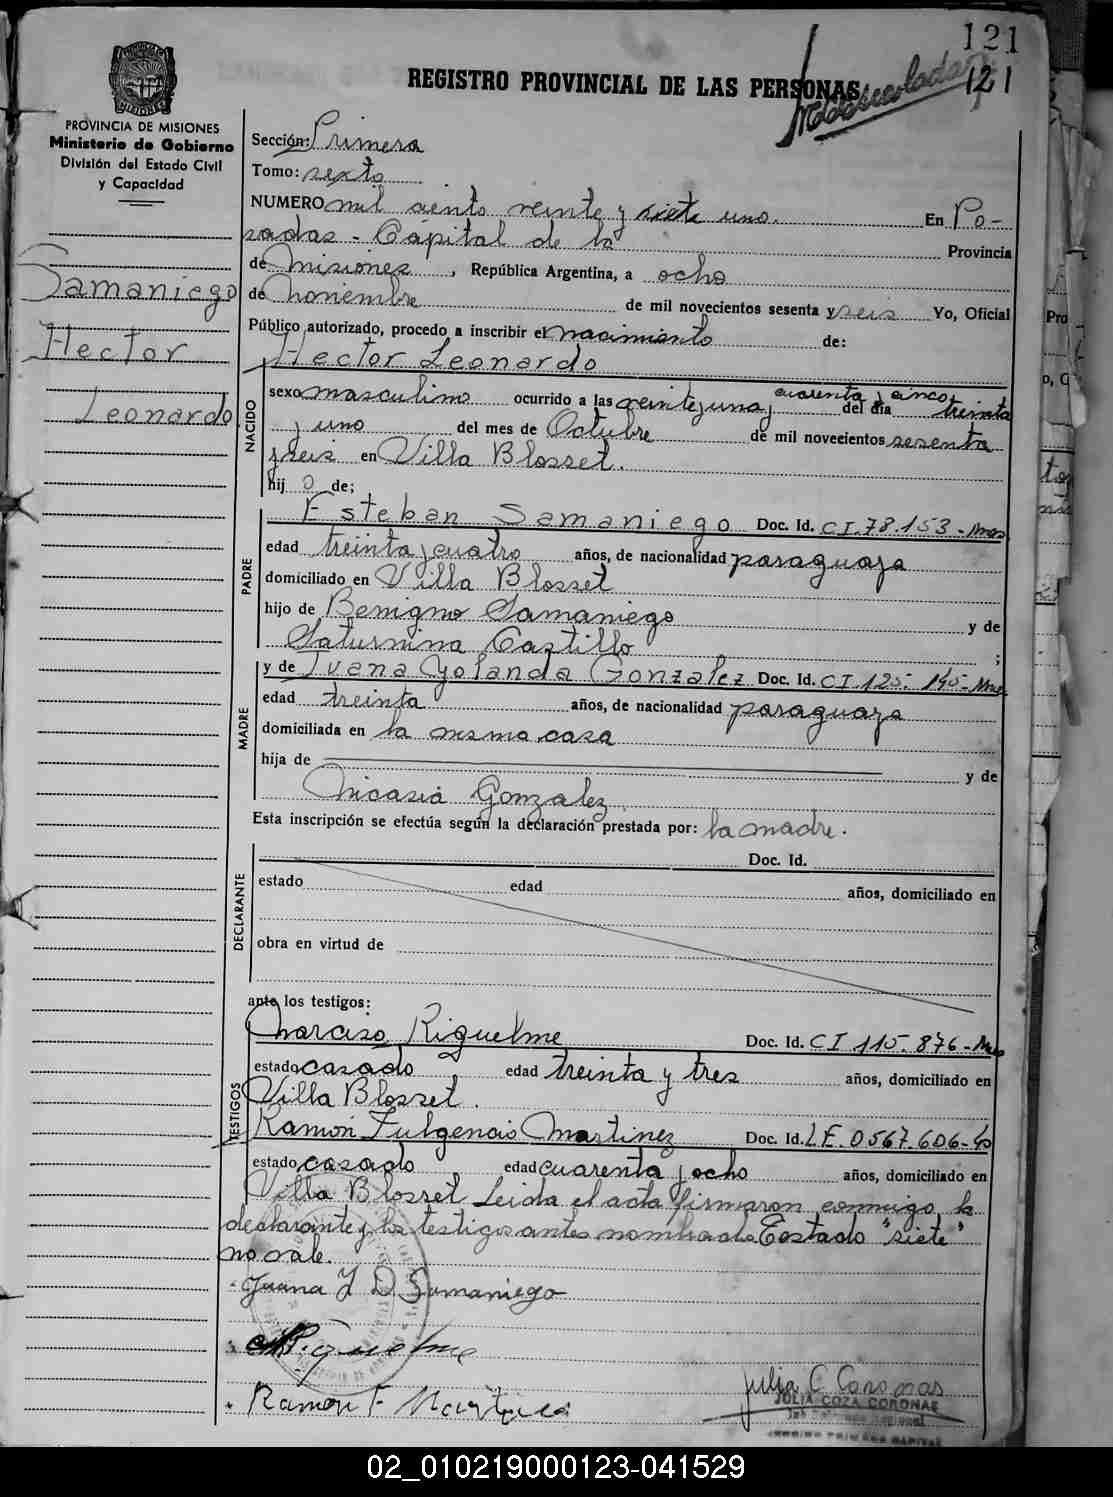 121
121
REGISTRO PROVINCIAL DE LAS PERSONAS
PROVINCIA DE MISIONES
Ministerio de Gobierno
División del Estado Civil
y Capacidad
Samaniego
Hector
Leonardo
Sección: Primera
Tomo: sexto
NUMERO mil ciento veinte y siete uno. En Po-
sadas - Capital de la Provincia
de Misiones, República Argentina, a ocho
de Noviembre de mil novecientos sesenta y seis Yo, Oficial
Público autorizado, procedo a inscribir el nacimiento de:
Hector Leonardo
NACIDO
sexo masculino ocurrido a las veinte y una y cuarenta y cinco del día treinta
y uno del mes de Octubre de mil novecientos sesenta
y seis en Villa Blosset.
hijo de;
PADRE
Esteban Samaniego Doc. Id. CI. 78.153-Mnes
edad treinta y cuatro años, de nacionalidad paraguaya
domiciliado en Villa Blosset
hijo de Benigno Samaniego y de
Saturnina Castillo ;
MADRE
y de Juana Yolanda Gonzalez Doc. Id. CI 125. 145-Mnes
edad treinta años, de nacionalidad paraguaya
domiciliada en la misma casa
hija de y de
Nicasia Gonzalez
Esta inscripción se efectúa según la declaración prestada por: la madre.
DECLARANTE
Doc. Id.
estado edad años, domiciliado en
obra en virtud de
ante los testigos:
TESTIGOS
Narciso Riquelme Doc. Id. CI 115.876-Mnes
estado casado edad treinta y tres años, domiciliado en
Villa Blosset.
Ramón Fulgencio Martinez Doc. Id. LE. 0567.606-
estado casado edad cuarenta y ocho años, domiciliado en
Villa Blosset Leida el acta firmaron conmigo la
declarante y los testigos antes nombrado Testado "siete"
no vale.
Juana Y D Samaniego
Riquelme
Ramon F Martinez
Julia C Coronas
JULIA COZA CORONAS
02_010219000123-041529